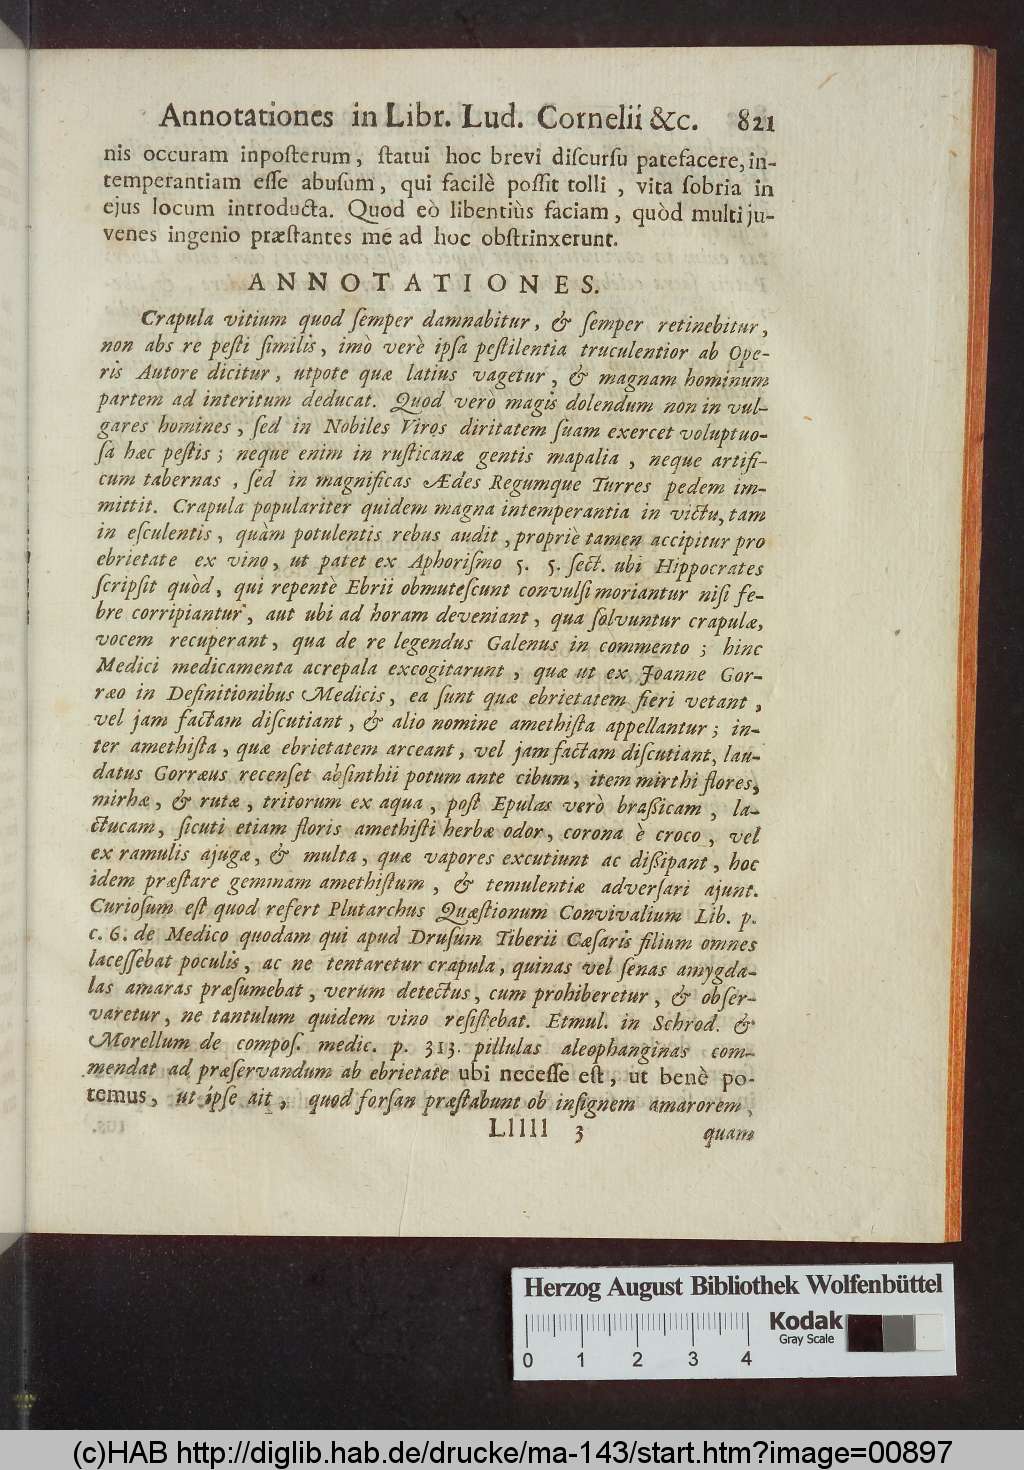 Annotationes in Libr. Lud. Cornelii &c. 821
nis occuram inposterum, statui hoc brevi discursu patefacere, in-
temperantiam esse abusum, qui facilè possit tolli, vita sobria in
ejus locum introducta. Quod eò libentiùs faciam, quòd multi ju-
venes ingenio præstantes me ad hoc obstrinxerunt.
ANNOTATIONES.
Crapula vitium quod semper damnabitur, & semper retinebitur,
non abs re pesti similis, imò verè ipsa pestilentia truculentior ab Ope-
ris Autore dicitur, utpote quæ latius vagetur, & magnam hominum
partem ad interitum deducat. Quod verò magis dolendum non in vul-
gares homines, sed in Nobiles Viros diritatem suam exercet voluptuo-
sa hæc pestis; neque enim in rusticanæ gentis mapalia, neque artifi-
cum tabernas, sed in magnificas Ædes Regumque Turres pedem im-
mittit. Crapula populariter quidem magna intemperantia in victu, tam
in esculentis, quàm potulentis rebus audit, propriè tamen accipitur pro
ebrietate ex vino, ut patet ex Aphorismo 5. 5. sect. ubi Hippocrates
scripsit quòd, qui repentè Ebrii obmutescunt convulsi moriantur nisi fe-
bre corripiantur, aut ubi ad horam deveniant, qua solvuntur crapulæ,
vocem recuperant, qua de re legendus Galenus in commento; hinc
Medici medicamenta acrepala excogitarunt, quæ ut ex Joanne Gor-
ræo in Definitionibus Medicis, ea sunt quæ ebrietatem fieri vetant,
vel jam factam discutiant, & alio nomine amethista appellantur; in-
ter amethista, quæ ebrietatem arceant, vel jam factam discutiant, lau-
datus Gorræus recenset absinthii potum ante cibum, item mirthi flores,
mirhæ, & rutæ, tritorum ex aqua, post Epulas verò brassicam, la-
ctucam, sicuti etiam floris amethisti herbæ odor, corona è croco, vel
ex ramulis ajugæ, & multa, quæ vapores excutiunt ac dissipant, hoc
idem præstare gemmam amethistum, & temulentiæ adversari ajunt.
Curiosum est quod refert Plutarchus Quæstionum Convivalium Lib. p.
c. 6. de Medico quodam qui apud Drusum Tiberii Cæsaris filium omnes
lacessebat poculis, ac ne tentaretur crapula, quinas vel senas amygda-
las amaras præsumebat, verum detectus, cum prohiberetur, & obser-
varetur, ne tantulum quidem vino resistebat. Etmul. in Schrod. &
Morellum de compos. medic. p. 313. pillulas aleophanginas com-
mendat ad præservandum ab ebrietate ubi necesse est, ut benè po-
temus, ut ipse ait, quod forsan præstabunt ob insignem amarorem,
Lllll 3 quam
Herzog August Bibliothek Wolfenbüttel
Kodak
Gray Scale
0 1 2 3 4
(c)HAB http://diglib.hab.de/drucke/ma-143/start.htm?image=00897